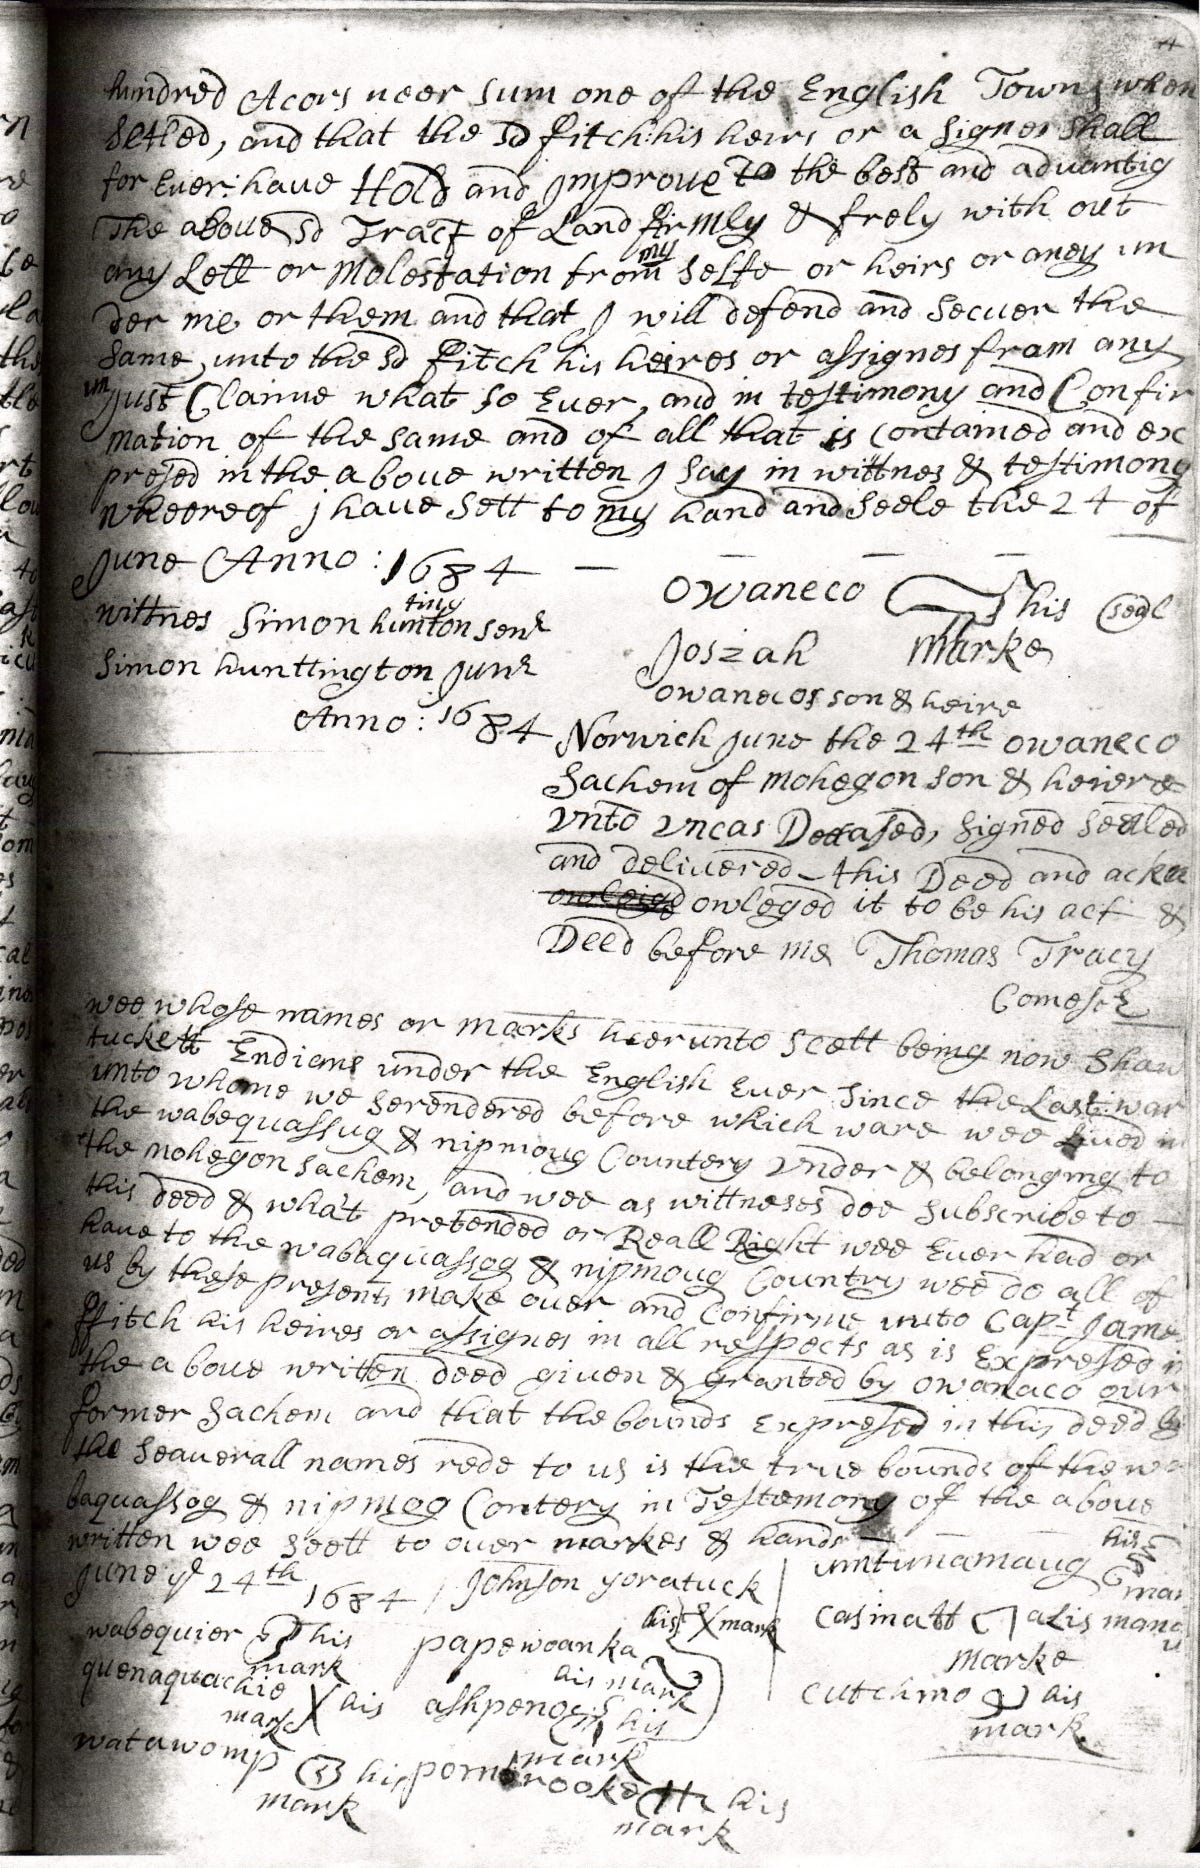 hundred Acors neer sum one of the English Towns when
setled, and that the sd Fitch: his heirs or a signes shall
for Ever: have Hold and Improve to the best and advantig
The above sd Tract of Land firmly & frely with out
any Lett or Molestation from my selfe or heirs or aney un
der me or them and that J will defend and secuer the
same, unto the sd Fitch his heires or assignes fram any
un just Claime what so Ever, and in testimony and Confir
mation of the same and of all that is contained and ex
presed in the a bove written J say in wittnes & testimony
wheereof j have sett to my hand and seele the 24 of
June Anno: 1684
Owaneco his seal
marke
wittnes Simon huntington senr
Simon hunttington Junr
Josiah
owanecos son & heire
Anno: 1684
Norwich June the 24th owaneco
Sachem of mohegon son & heiere
unto uncas Deceased, signed seeled
and delivered this Deed and ackn
owleged it to be his act &
Deed before me Thomas Tracy
Comesr
wee whose names or marks heerunto seett being now Shaw
tuckett Endians under the English Ever since the Last war
unto whome we serendered before which ware wee lived in
the wabequassug & nipmoug Countery under & belonging to
the mohegon sachem, and wee as wittneses doe subscribe to
this deed & what pretended or Reall Right wee Ever had or
have to the wabaquassog & nipmoug Country wee do all of
us by these presents make over and Confirme unto Capt Jame
Fitch his heires or assignes in all respects as is Expresed in
the a bove written deed given & granted by owanaco our
former Sachem and that the bounds expresed in this deed by
the seaverall names rede to us is the true bounds of the wa
baquassog & nipmog Contery in Testemony of the above
written wee seett to over markes & hands
June ye 24th 1684
Johnson yoratuck
his X mark
umtunamaug his
mar
wabequier his
mark
papewoanka
his mark
casinatt alis mana
marke
quenaquachie
mark X his
ashpenocs
his
mark
cutchmo his
mark
watawomp his
mark
his
mark